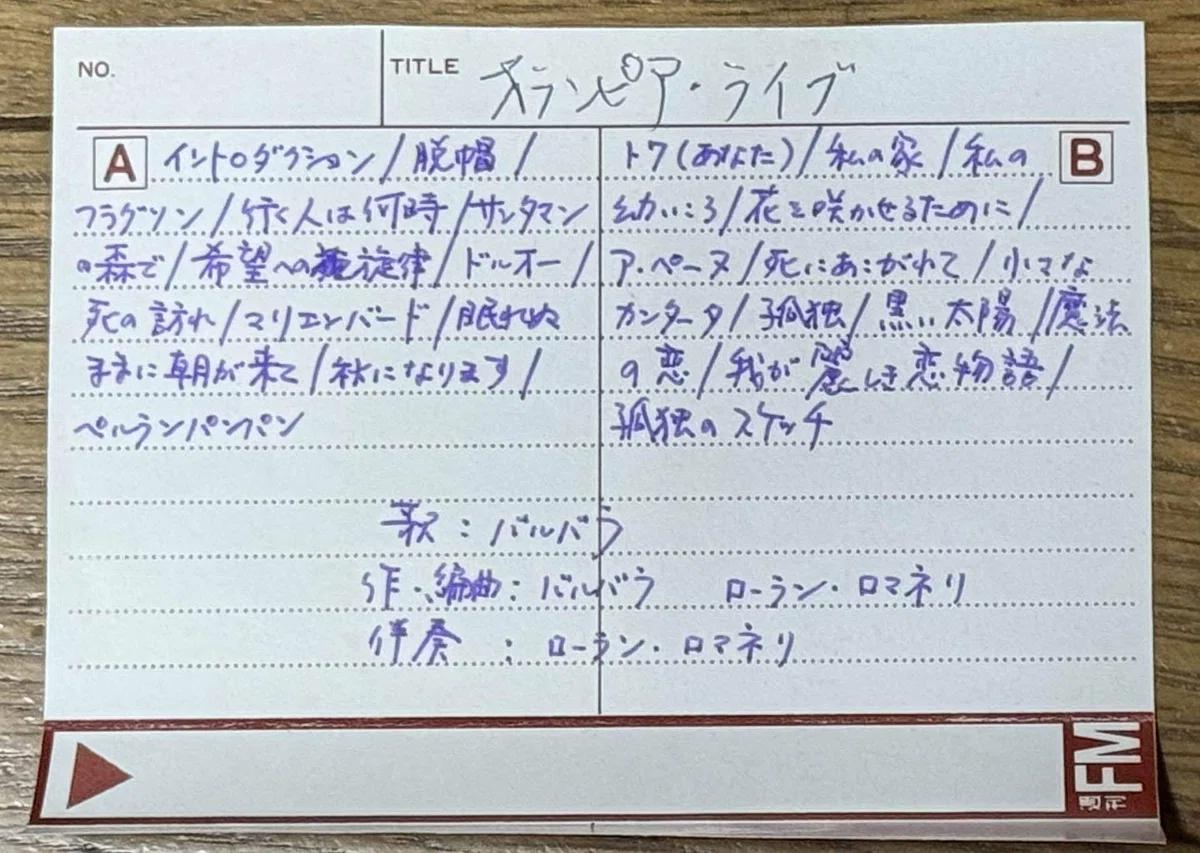 NO.
TITLE オランピア・ライブ
A イントロダクション/脱帽/
フラグソン/行く人は何時/サンタマン
の森で/希望への旋律/ドルオー/
死の訪れ/マリエンバード/眠れぬ
ままに朝が来て/秋になります/
ペルランパンパン
B
トワ(あなた)/私の家/私の
幼いころ/花を咲かせるために/
ア・ペーヌ/死にあこがれて/小さな
カンタータ/孤独/黒い太陽/魔法
の恋/我が麗しき恋物語/
孤独のスケッチ
歌:バルバラ
作・編曲:バルバラ ローラン・ロマネリ
伴奏:ローラン・ロマネリ
週刊FM